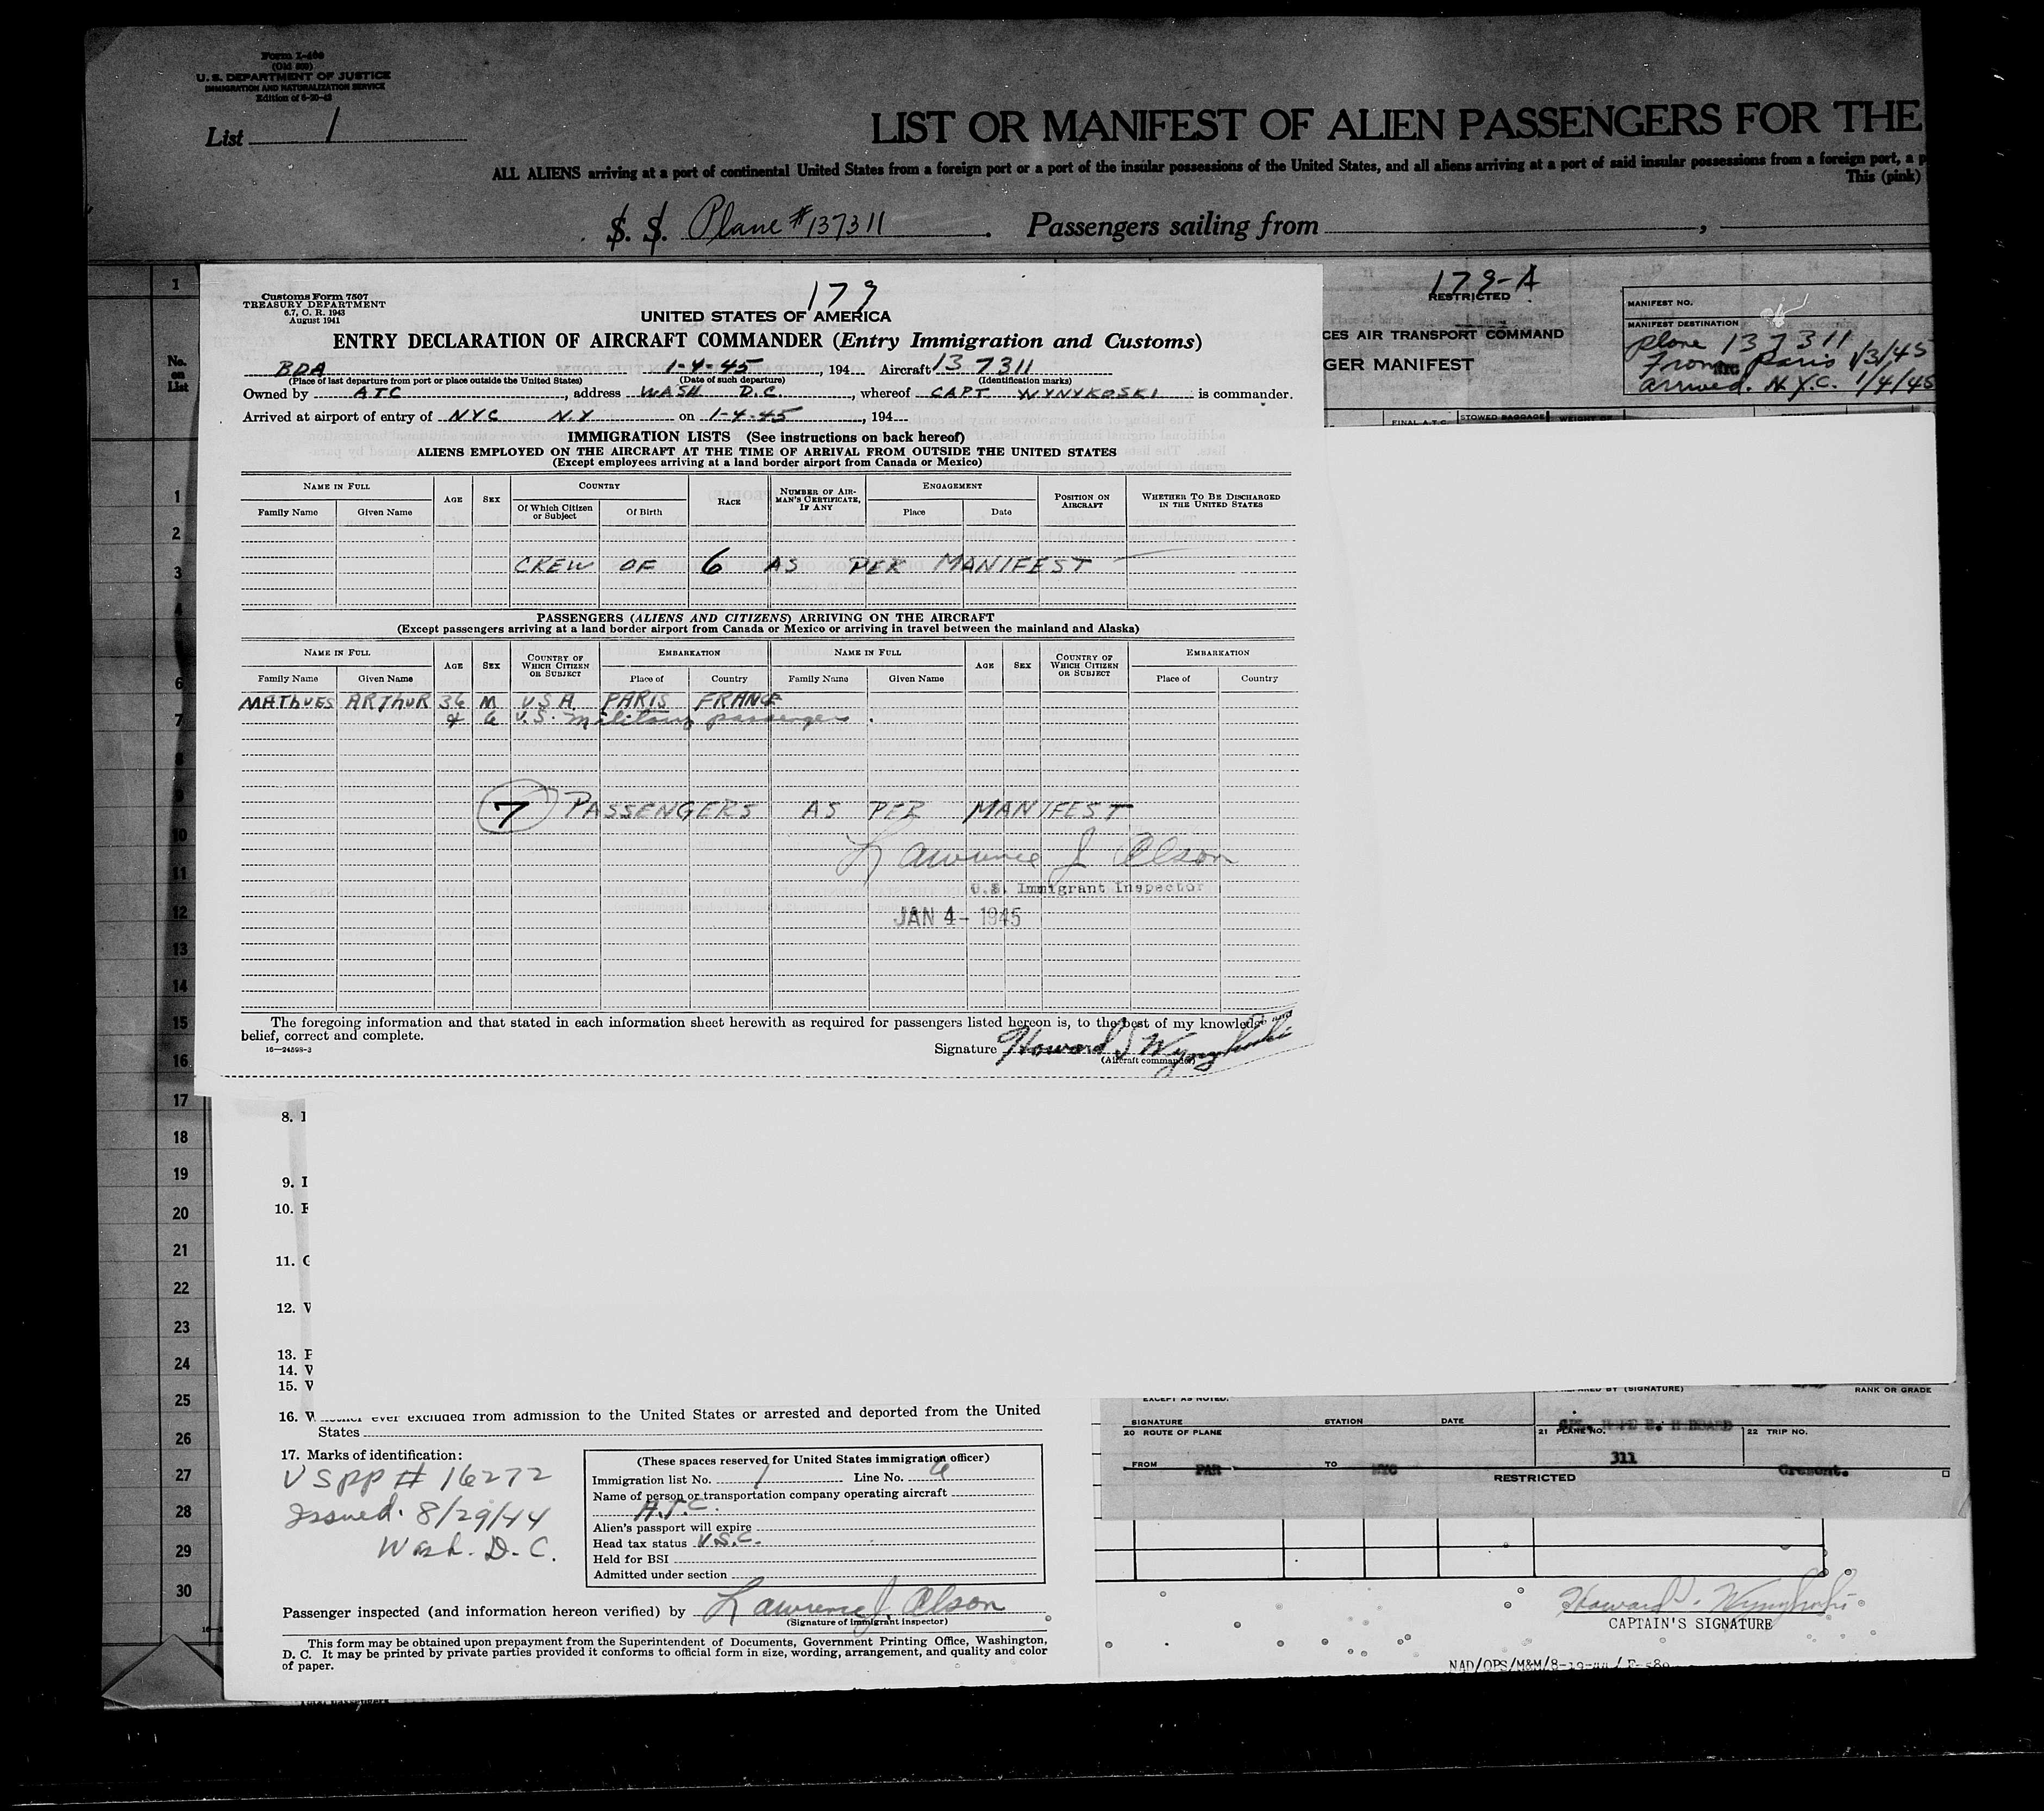 Form I-466
(Old 500)
U. S. DEPARTMENT OF JUSTICE
IMMIGRATION AND NATURALIZATION SERVICE
Edition of 6-20-42
List 1
LIST OR MANIFEST OF ALIEN PASSENGERS FOR THE
ALL ALIENS arriving at a port of continental United States from a foreign port or a port of the insular possessions of the United States, and all aliens arriving at a port of said insular possessions from a foreign port, a p
This (pink)
S. S. Plane #137311. Passengers sailing from ,
179-A
RESTRICTED
CES AIR TRANSPORT COMMAND
GER MANIFEST
MANIFEST NO.
MANIFEST DESTINATION
plane 137311
From Paris 1/3/45
arrived. N.Y.C. 1/4/45
FINAL A.T.C. STOWED BAGGAGE WEIGHT OF
No.
on
List
179
Customs Form 7507
TREASURY DEPARTMENT
6.7, C. R. 1943
August 1941
UNITED STATES OF AMERICA
ENTRY DECLARATION OF AIRCRAFT COMMANDER (Entry Immigration and Customs)
BDA 1-4-45, 194 Aircraft 137311
(Place of last departure from port or place outside the United States) (Date of such departure) (Identification marks)
Owned by ATC, address WASH D.C., whereof CAPT WYNYKOSKI is commander.
Arrived at airport of entry of NYC N.Y on 1-4-45, 194
IMMIGRATION LISTS (See instructions on back hereof)
ALIENS EMPLOYED ON THE AIRCRAFT AT THE TIME OF ARRIVAL FROM OUTSIDE THE UNITED STATES
(Except employees arriving at a land border airport from Canada or Mexico)
NAME IN FULL AGE SEX COUNTRY RACE NUMBER OF AIR-MAN'S CERTIFICATE, IF ANY ENGAGEMENT POSITION ON AIRCRAFT WHETHER TO BE DISCHARGED IN THE UNITED STATES
Family Name Given Name Of Which Citizen or Subject Of Birth Place Date
CREW OF 6 AS PER MANIFEST
PASSENGERS (ALIENS AND CITIZENS) ARRIVING ON THE AIRCRAFT
(Except passengers arriving at a land border airport from Canada or Mexico or arriving in travel between the mainland and Alaska)
NAME IN FULL AGE SEX COUNTRY OF WHICH CITIZEN OR SUBJECT EMBARKATION NAME IN FULL AGE SEX COUNTRY OF WHICH CITIZEN OR SUBJECT EMBARKATION
Family Name Given Name Place of Country Family Name Given Name Place of Country
MATHUES ARTHUR 36 M USA PARIS FRANCE
& 6 U.S. military passengers.
7 PASSENGERS AS PER MANIFEST
Lawrence J Olson
U.S. Immigrant Inspector
JAN 4 - 1945
The foregoing information and that stated in each information sheet herewith as required for passengers listed hereon is, to the best of my knowledge and
belief, correct and complete.
16—24598-3
Signature Howard J Wynykoski
(Aircraft commander)
1
1
2
3
4
6
7
8
9
10
11
12
13
14
15
16
17
18
19
20
21
22
23
24
25
26
27
28
29
30
8. I
9. I
10. F
11. C
12. V
13. F
14. V
15. V
16. W ever excluded from admission to the United States or arrested and deported from the United
States
17. Marks of identification:
USPP # 16272
Issued. 8/29/44
Wash. D.C.
(These spaces reserved for United States immigration officer)
Immigration list No. 1 Line No. 6
Name of person or transportation company operating aircraft
A.T.C.
Alien's passport will expire
Head tax status U.S.C.
Held for BSI
Admitted under section
Passenger inspected (and information hereon verified) by Lawrence J. Olson
(Signature of immigrant inspector)
This form may be obtained upon prepayment from the Superintendent of Documents, Government Printing Office, Washington,
D. C. It may be printed by private parties provided it conforms to official form in size, wording, arrangement, and quality and color
of paper.
Total passengers
EXCEPT AS NOTED. BY (SIGNATURE) RANK OR GRADE
SIGNATURE STATION DATE
20 ROUTE OF PLANE 21 PLANE NO. 22 TRIP NO.
FROM PAR TO NYC 311 Cresont.
RESTRICTED
Howard J. Wynykoski
CAPTAIN'S SIGNATURE
NAD/OPS/M&M/8-19-44/ F-580